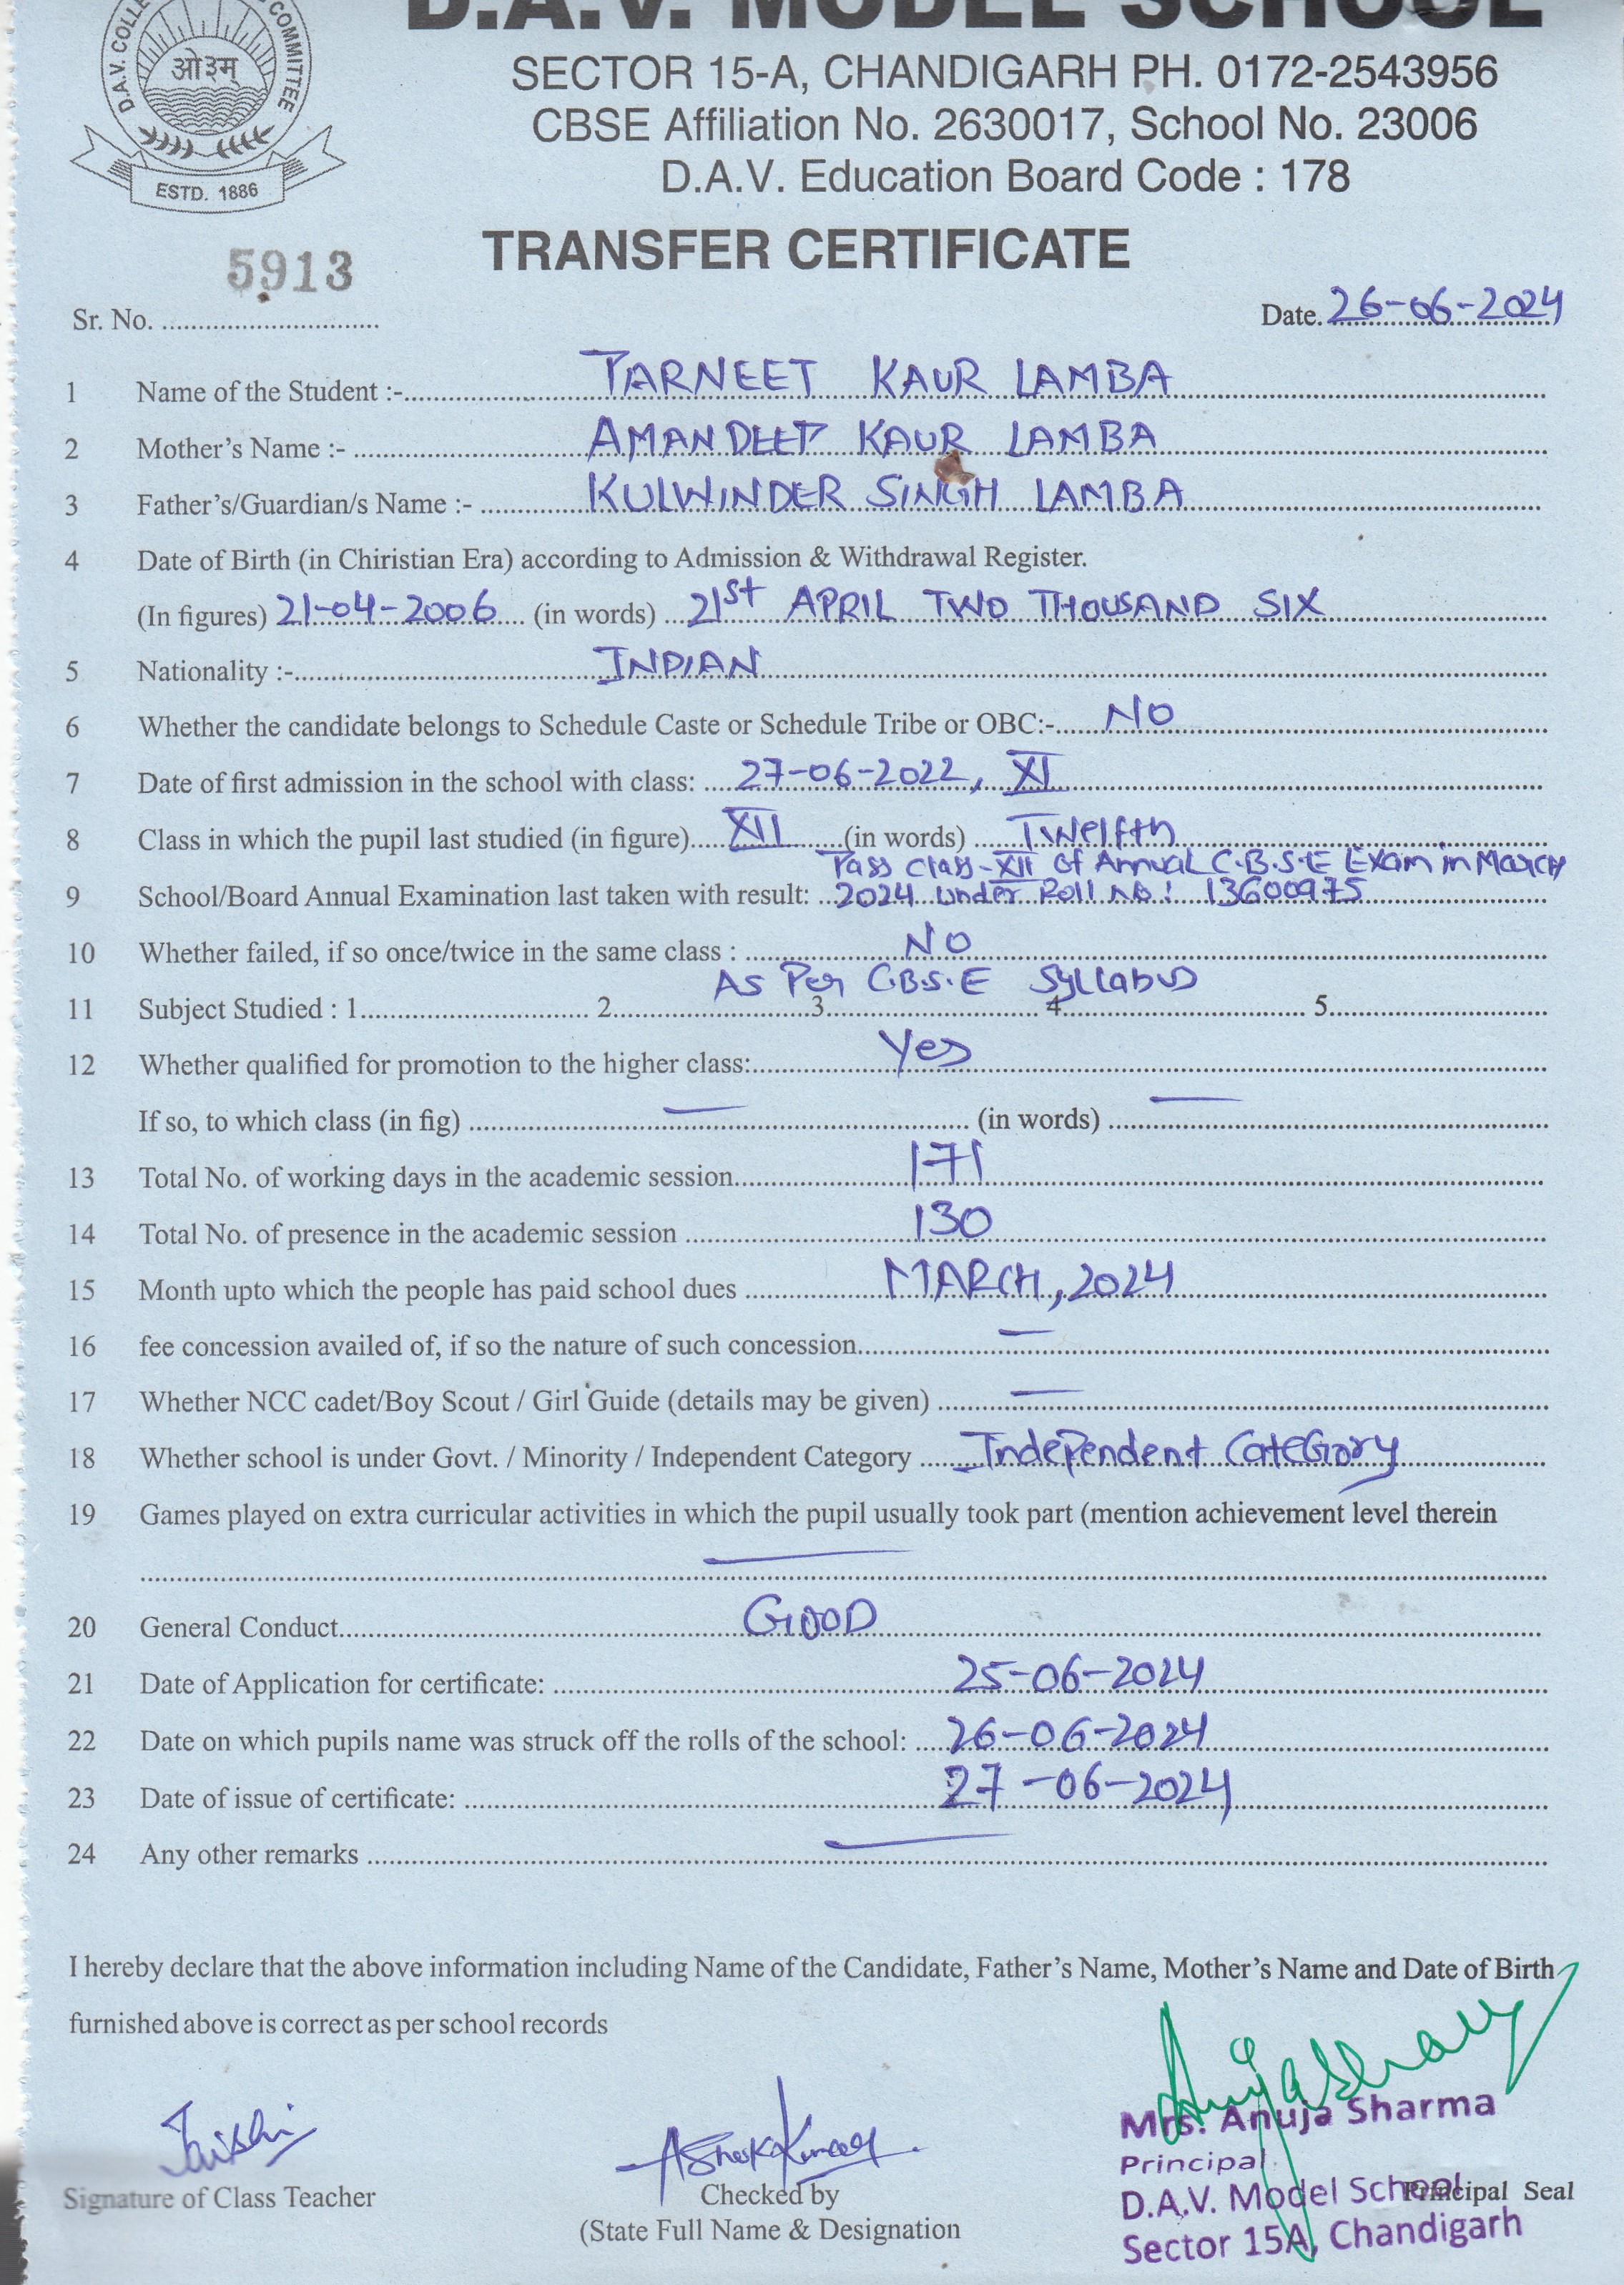 D.A.V. COLLEGE COMMITTEE
ओ३म्
ESTD. 1886
D.A.V. MODEL SCHOOL
SECTOR 15-A, CHANDIGARH PH. 0172-2543956
CBSE Affiliation No. 2630017, School No. 23006
D.A.V. Education Board Code : 178
TRANSFER CERTIFICATE
5913
Sr. No. ............ Date. 26-06-2024
1 Name of the Student :- TARNEET KAUR LAMBA
2 Mother's Name :- AMANDEEP KAUR LAMBA
3 Father's/Guardian/s Name :- KULWINDER SINGH LAMBA
4 Date of Birth (in Chiristian Era) according to Admission & Withdrawal Register.
(In figures) 21-04-2006 (in words) 21st APRIL TWO THOUSAND SIX
5 Nationality :- INDIAN
6 Whether the candidate belongs to Schedule Caste or Schedule Tribe or OBC:- NO
7 Date of first admission in the school with class: 27-06-2022, XI
8 Class in which the pupil last studied (in figure) XII (in words) Twelfth
Pass Class-XII Of Annual C.B.S.E Exam in March
9 School/Board Annual Examination last taken with result: 2024 under Roll No: 13600975
10 Whether failed, if so once/twice in the same class : NO
As Per C.B.S.E Syllabus
11 Subject Studied : 1 2 3 4 5
12 Whether qualified for promotion to the higher class: Yes
If so, to which class (in fig) — (in words) —
13 Total No. of working days in the academic session 171
14 Total No. of presence in the academic session 130
15 Month upto which the people has paid school dues MARCH, 2024
16 fee concession availed of, if so the nature of such concession —
17 Whether NCC cadet/Boy Scout / Girl Guide (details may be given) —
18 Whether school is under Govt. / Minority / Independent Category Independent Category
19 Games played on extra curricular activities in which the pupil usually took part (mention achievement level therein
—
20 General Conduct GOOD
21 Date of Application for certificate: 25-06-2024
22 Date on which pupils name was struck off the rolls of the school: 26-06-2024
23 Date of issue of certificate: 27-06-2024
24 Any other remarks —
I hereby declare that the above information including Name of the Candidate, Father's Name, Mother's Name and Date of Birth
furnished above is correct as per school records
Anuja Sharma
Mrs. Anuja Sharma
Principal
D.A.V. Model School
Sector 15A, Chandigarh
Principal Seal
Signature of Class Teacher
Checked by
(State Full Name & Designation